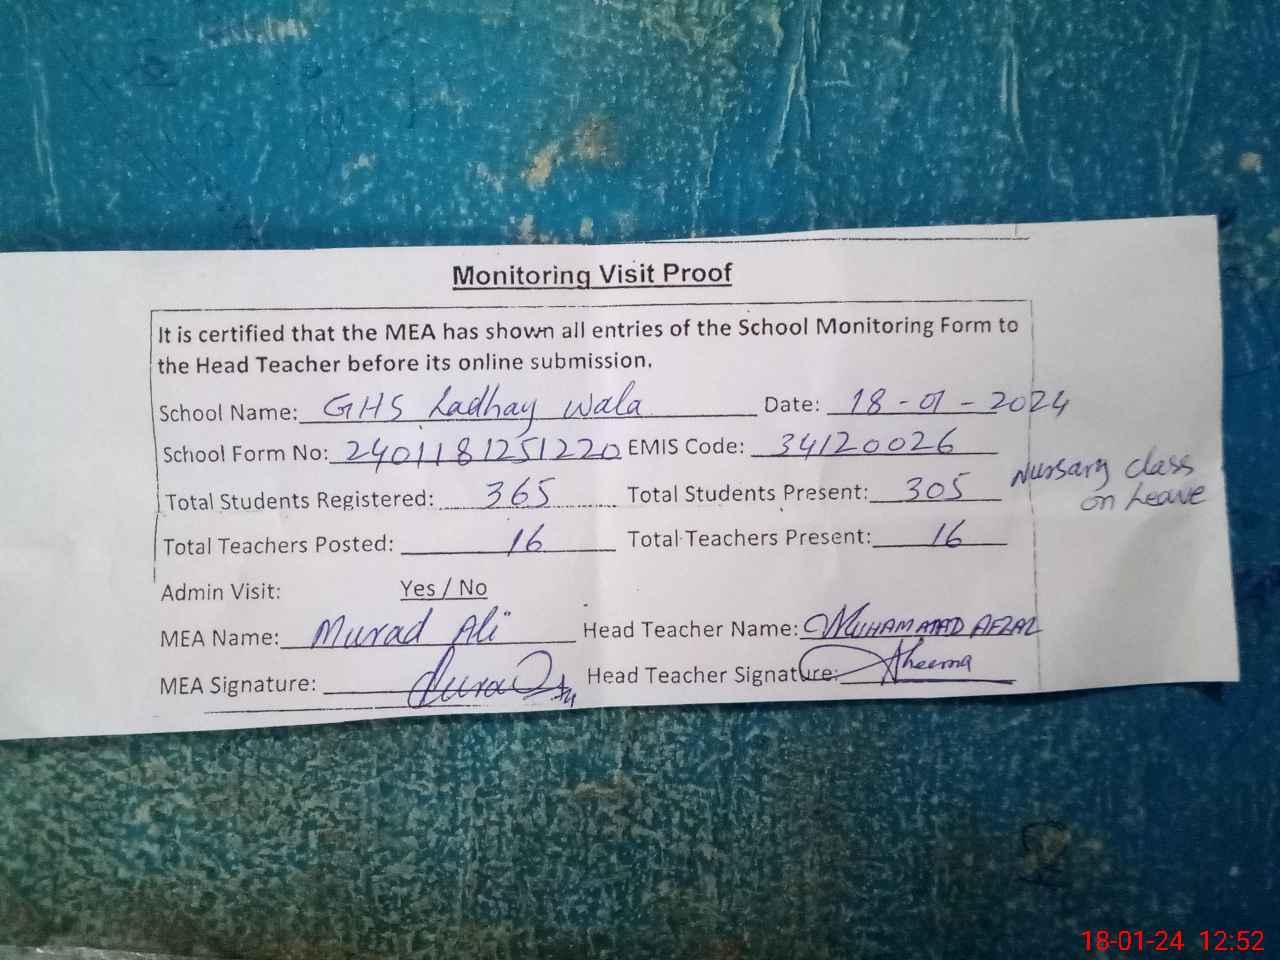 Monitoring Visit Proof
It is certified that the MEA has shown all entries of the School Monitoring Form to
the Head Teacher before its online submission.
School Name: GHS Ladhay Wala Date: 18-01-2024
School Form No: 2401181251220 EMIS Code: 34120026
Total Students Registered: 365 Total Students Present: 305 Nursary class
on Leave
Total Teachers Posted: 16 Total Teachers Present: 16
Admin Visit: Yes / No
MEA Name: Murad Ali Head Teacher Name: MUHAMMAD AFZAL
MEA Signature: Head Teacher Signature: Cheema
18-01-24 12:52